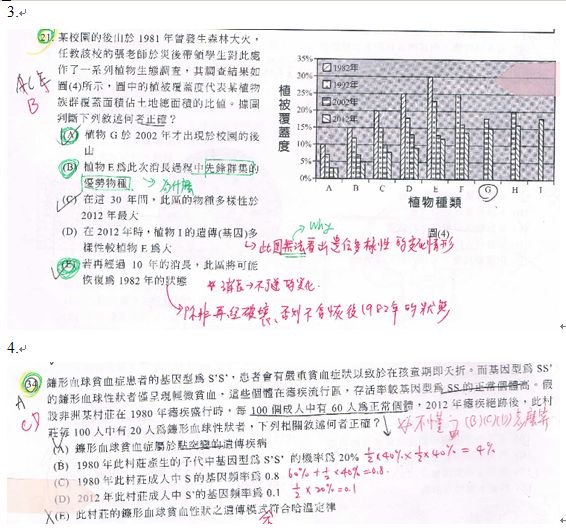 3.
21. 某校園的後山於 1981 年曾發生森林大火，
任教該校的張老師於災後帶領學生對此處
作了一系列植物生態調查，其調查結果如
圖(4)所示，圖中的植被覆蓋度代表某植物
族群覆蓋面積佔土地總面積的比值。據圖
判斷下列敘述何者正確？
(A) 植物 G 於 2002 年才出現於校園的後
山
(B) 植物 E 為此次消長過程中先鋒群集的
優勢物種
為什麼
(C) 在這 30 年間，此區的物種多樣性於
2012 年最大
(D) 在 2012 年時，植物 I 的遺傳(基因)多
樣性較植物 E 為大
(E) 若再經過 10 年的消長，此區將可能
恢復為 1982 年的狀態
植被覆蓋度
35%
30%
25%
20%
15%
10%
5%
0%
1982年
1992年
2002年
2012年
A B C D E F G H I
植物種類
圖(4)
Why
此圖無法看出遺傳多樣性的變化情形
消長→不可逆的變化
除非再經破壞，否則不會恢復1982年的狀態
4.
34. 鐮形血球貧血症患者的基因型為 S'S'，患者會有嚴重貧血症狀以致於在孩童期即夭折。而基因型為 SS'
的鐮形血球性狀者僅呈現輕微貧血，這些個體在瘧疾流行區，存活率較基因型為 SS 的正常個體高。假
設非洲某村莊在 1980 年瘧疾盛行時，每 100 個成人中有 60 人為正常個體，2012 年瘧疾絕跡後，此村
莊每 100 人中有 20 人為鐮形血球性狀者，下列相關敘述何者正確？
不懂 (B)(C)(D)怎麼算
(A) 鐮形血球貧血症屬於點突變的遺傳疾病
(B) 1980 年此村莊產生的子代中基因型為 S'S' 的機率為 20% ½×40%×½×40% = 4%
(C) 1980 年此村莊成人中 S 的基因頻率為 0.8 60%+½×40%=0.8
(D) 2012 年此村莊成人中 S'的基因頻率為 0.1 ½×20%=0.1
(E) 此村莊的鐮形血球貧血性狀之遺傳模式符合哈溫定律